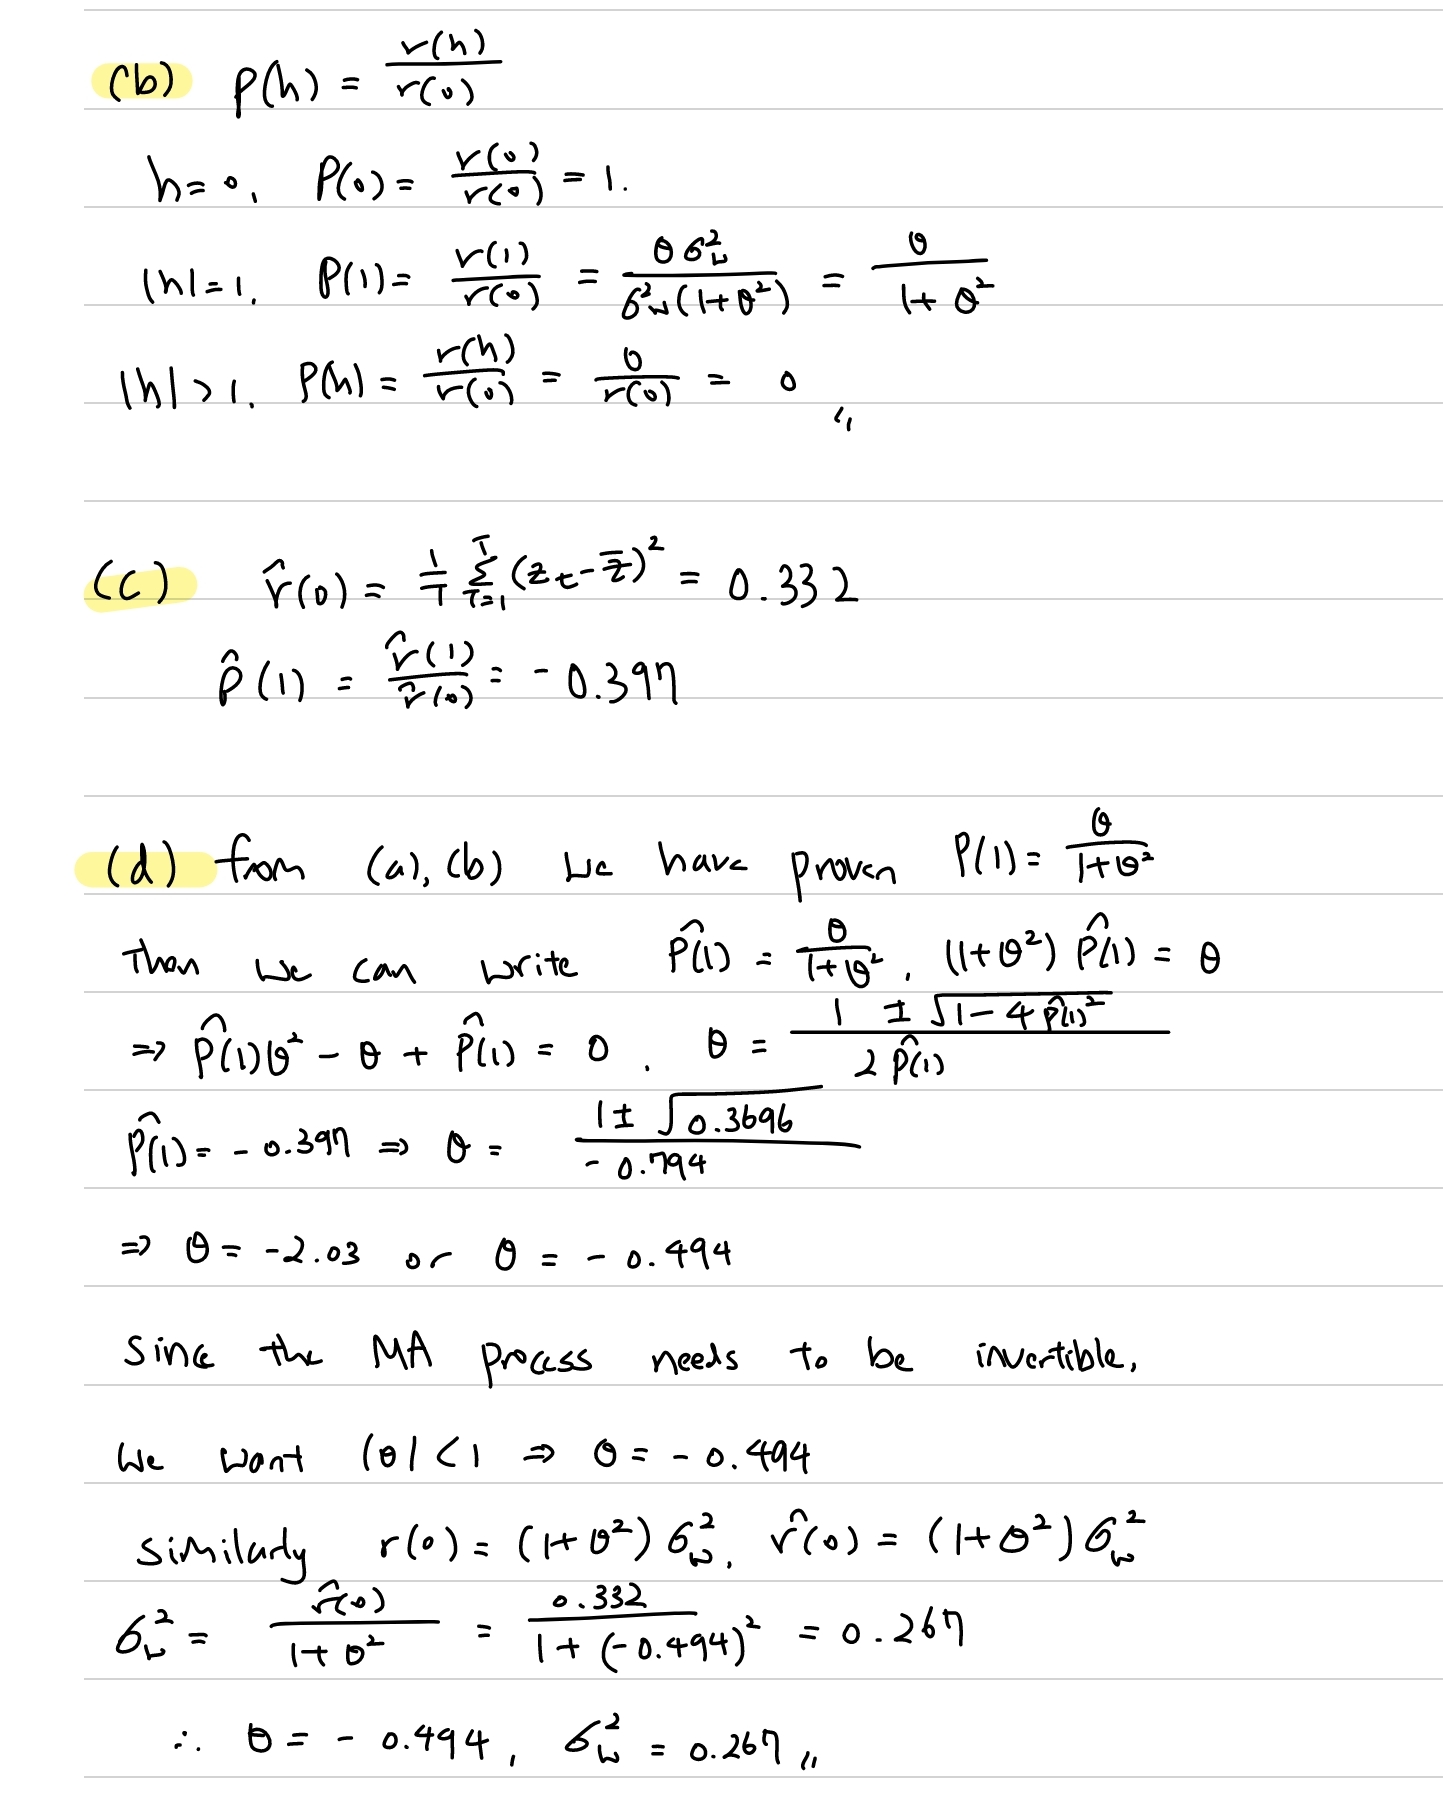 (b) ρ(h) = r(h)/r(0)
h=0, ρ(0) = r(0)/r(0) = 1.
|h|=1, ρ(1) = r(1)/r(0) = θσ²w/σ²w(1+θ²) = θ/1+θ²
|h|>1, ρ(h) = r(h)/r(0) = 0/r(0) = 0 〃
(c) r̂(0) = 1/T Σ_{T=1}^{T} (z_t - z̄)² = 0.332
ρ̂(1) = r̂(1)/r̂(0) = -0.397
(d) from (a), (b) we have proven ρ(1) = θ/1+θ²
Then we can write ρ̂(1) = θ/1+θ², (1+θ²) ρ̂(1) = θ
⇒ ρ̂(1)θ² - θ + ρ̂(1) = 0. θ = 1 ± √1-4ρ̂(1)² / 2ρ̂(1)
ρ̂(1) = -0.397 ⇒ θ = 1 ± √0.3696 / -0.794
⇒ θ = -2.03 or θ = -0.494
Since the MA process needs to be invertible,
We want |θ| < 1 ⇒ θ = -0.494
similarly r(0) = (1+θ²)σ²w, r̂(0) = (1+θ²)σ²w
σ²w = r̂(0)/1+θ² = 0.332/1+(-0.494)² = 0.267
∴ θ = -0.494, σ²w = 0.267 〃